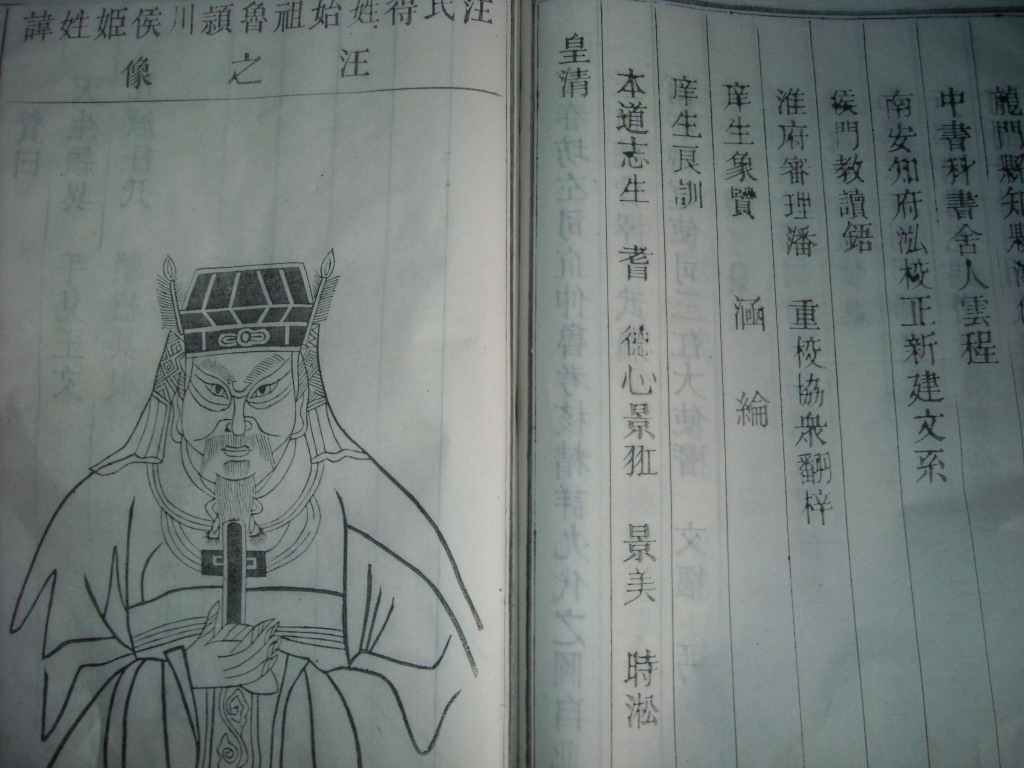 龍門縣知縣
中書科書舍人雲程
南安知府泓校正新建文系
門教讀鋙
淮府審理潘 重校協衆翻梓
庠生象贊 涵 綸
庠生良訓
本道志生 耆 德心景 景美 時淞
皇清
汪氏得姓始祖魯潁川侯姬姓諱
汪之像